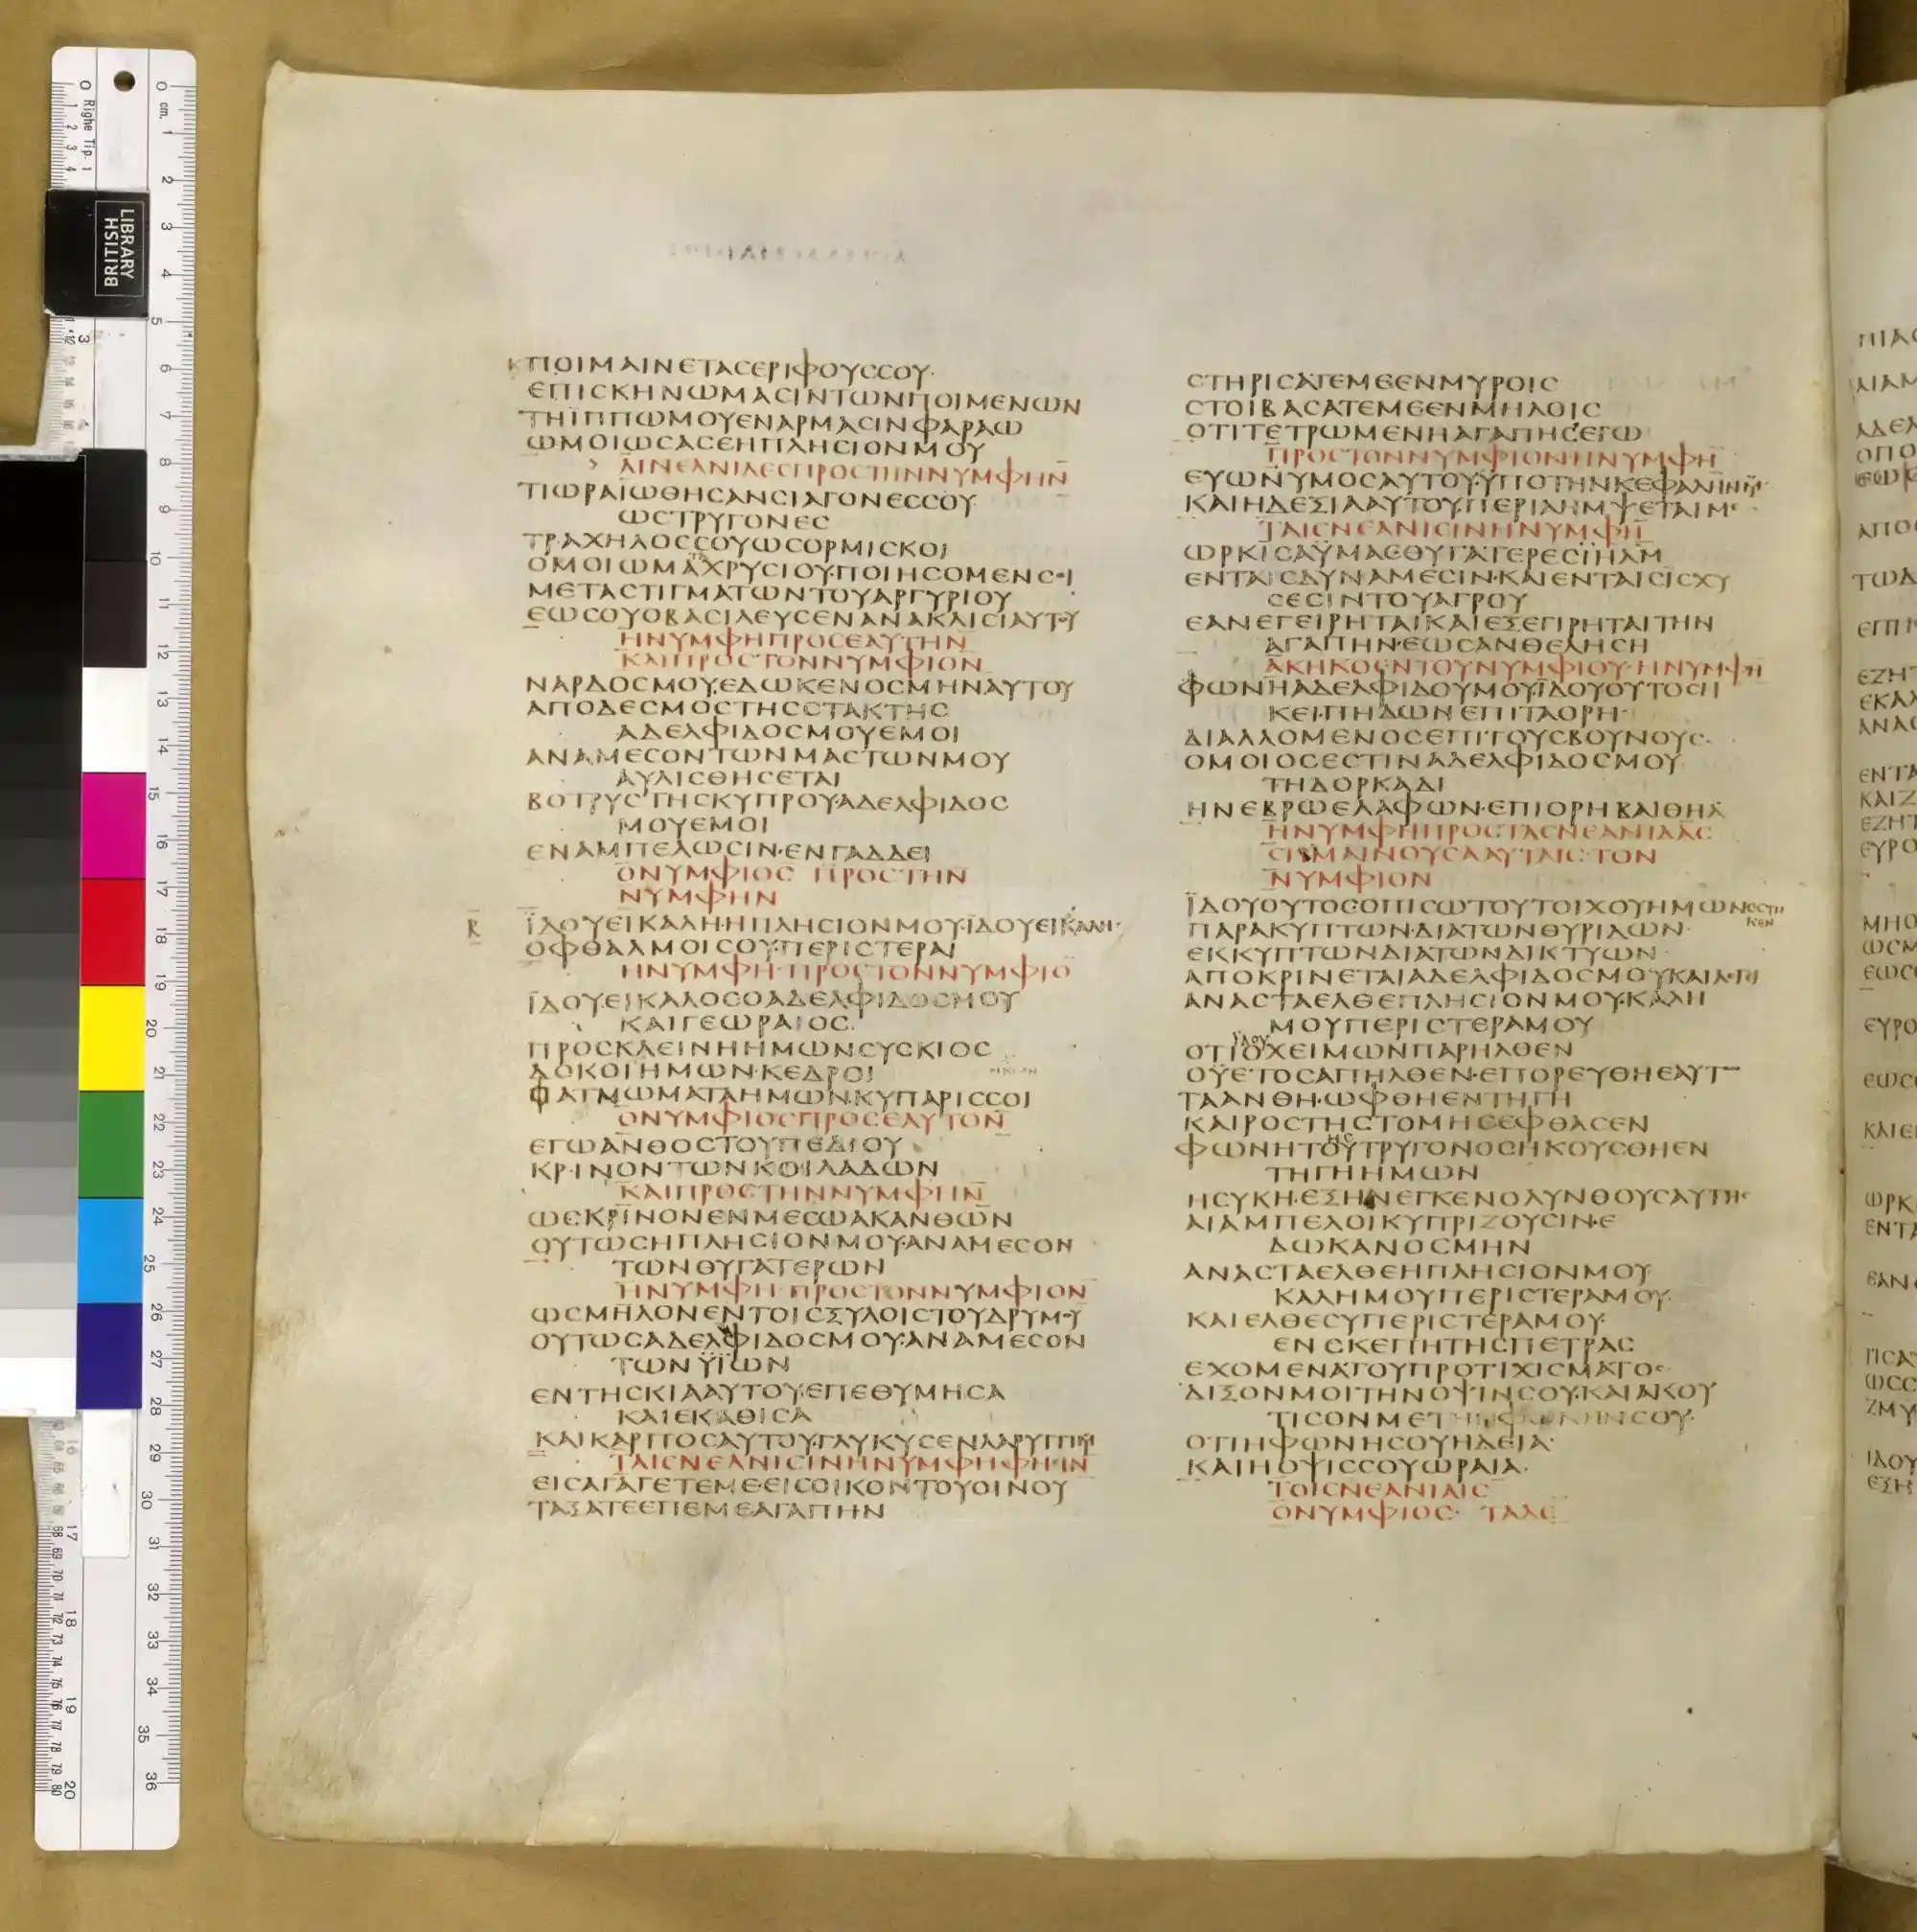 ΚΠΟΙΜΑΙΝΕΤΑCΕΡΙΦΟΥCCΟΥ·
ΕΠΙCΚΗΝΩΜΑCΙΝΤΩΝΠΟΙΜΕΝΩΝ
ΤΗΪΠΠΩΜΟΥΕΝΑΡΜΑCΙΝΦΑΡΑΩ
ΩΜΟΙΩCΑCΕΗΠΛΗCΙΟΝΜΟΥ
ΑΙΝΕΑΝΙΔΕCΠΡΟCΤΗΝΝΥΜΦΗΝ
ΤΙΩΡΑΙΩΘΗCΑΝCΙΑΓΟΝΕCCΟΥ·
ΩCΤΡΥΓΟΝΕC
ΤΡΑΧΗΛΟCCΟΥΩCΟΡΜΙCΚΟΙ
ΟΜΟΙΩΜΑΤΑΧΡΥCΙΟΥ·ΠΟΙΗCΟΜΕΝCΟΙ
ΜΕΤΑCΤΙΓΜΑΤΩΝΤΟΥΑΡΓΥΡΙΟΥ
ΕΩCΟΥΟΒΑCΙΛΕΥCΕΝΑΝΑΚΛΙCΙΑΥΤΟΥ
ΗΝΥΜΦΗΠΡΟCΕΑΥΤΗΝ
ΚΑΙΠΡΟCΤΟΝΝΥΜΦΙΟΝ
ΝΑΡΔΟCΜΟΥ·ΕΔΩΚΕΝΟCΜΗΝΑΥΤΟΥ
ΑΠΟΔΕCΜΟCΤΗCCΤΑΚΤΗC
ΑΔΕΛΦΙΔΟCΜΟΥΕΜΟΙ
ΑΝΑΜΕCΟΝΤΩΝΜΑCΤΩΝΜΟΥ
ΑΥΛΙCΘΗCΕΤΑΙ
ΒΟΤΡΥCΤΗCΚΥΠΡΟΥ·ΑΔΕΛΦΙΔΟC
ΜΟΥΕΜΟΙ
ΕΝΑΜΠΕΛΩCΙΝ·ΕΝΓΑΔΔΕΙ
ΟΝΥΜΦΙΟC ΠΡΟCΤΗΝ
ΝΥΜΦΗΝ
ΪΔΟΥΕΙΚΑΛΗ·ΗΠΛΗCΙΟΝΜΟΥ·ΪΔΟΥΕΙΚΑΛΗ·
ΟΦΘΑΛΜΟΙCΟΥ·ΠΕΡΙCΤΕΡΑΙ
ΗΝΥΜΦΗ·ΠΡΟCΤΟΝΝΥΜΦΙΟ̅
ΪΔΟΥΕΙΚΑΛΟCΟΑΔΕΛΦΙΔΟCΜΟΥ
ΚΑΙΓΕΩΡΑΙΟC·
ΠΡΟCΚΛΕΙΝΗΗΜΩΝCΥCΚΙΟC
ΔΟΚΟΙΗΜΩΝ·ΚΕΔΡΟΙ
ΦΑΤΜΩΜΑΤΑΗΜΩΝ·ΚΥΠΑΡΙCCΟΙ
ΟΝΥΜΦΙΟCΠΡΟCΕΑΥΤΟΝ
ΕΓΩΑΝΘΟCΤΟΥΠΕΔΙΟΥ
ΚΡΙΝΟΝΤΩΝΚΟΙΛΑΔΩΝ
ΚΑΙΠΡΟCΤΗΝΝΥΜΦΗΝ
ΩCΚΡΙΝΟΝΕΝΜΕCΩΑΚΑΝΘΩΝ
ΟΥΤΩCΗΠΛΗCΙΟΝΜΟΥ·ΑΝΑΜΕCΟΝ
ΤΩΝΘΥΓΑΤΕΡΩΝ
ΗΝΥΜΦΗ·ΠΡΟCΤΟΝΝΥΜΦΙΟΝ
ΩCΜΗΛΟΝΕΝΤΟΙCΞΥΛΟΙCΤΟΥΔΡΥΜΟΥ
ΟΥΤΩCΑΔΕΛΦΙΔΟCΜΟΥ·ΑΝΑΜΕCΟΝ
ΤΩΝΫΪΩΝ
ΕΝΤΗCΚΙΑΑΥΤΟΥ·ΕΠΕΘΥΜΗCΑ
ΚΑΙΕΚΑΘΙCΑ
ΚΑΙΚΑΡΠΟCΑΥΤΟΥ·ΓΛΥΚΥCΕΝΛΑΡΥΓΓΙΜΟΥ
ΤΑΙCΝΕΑΝΙCΙΝΗΝΥΜΦΗΦΗCΙΝ
ΕΙCΑΓΑΓΕΤΕΜΕ·ΕΙCΟΙΚΟΝΤΟΥΟΙΝΟΥ
ΤΑΞΑΤΕΕΠΕΜΕΑΓΑΠΗΝ
CΤΗΡΙCΑΤΕΜΕΕΝΜΥΡΟΙC
CΤΟΙΒΑCΑΤΕΜΕΕΝΜΗΛΟΙC
ΟΤΙΤΕΤΡΩΜΕΝΗΑΓΑΠΗCΕΓΩ
ΠΡΟCΤΟΝΝΥΜΦΙΟΝΗΝΥΜΦΗ
ΕΥΩΝΥΜΟCΑΥΤΟΥ·ΫΠΟΤΗΝΚΕΦΑΛΗΝΜΟΥ
ΚΑΙΗΔΕΞΙΑΑΥΤΟΥ·ΠΕΡΙΛΗΜΨΕΤΑΙΜΕ
ΤΑΙCΝΕΑΝΙCΙΝΗΝΥΜΦΗ
ΩΡΚΙCΑΫΜΑCΘΥΓΑΤΕΡΕCΪΗΛΜ
ΕΝΤΑΙCΔΥΝΑΜΕCΙΝ·ΚΑΙΕΝΤΑΙCΙCΧΥ
CΕCΙΝΤΟΥΑΓΡΟΥ
ΕΑΝΕΓΕΙΡΗΤΑΙΚΑΙΕΞΕΓΙΡΗΤΑΙΤΗΝ
ΑΓΑΠΗΝ·ΕΩCΑΝΘΕΛΗCΗ
ΑΚΗΚΟΕΝΤΟΥΝΥΜΦΙΟΥ·ΗΝΥΜΦΗ
ΦΩΝΗΑΔΕΛΦΙΔΟΥΜΟΥ·ΪΔΟΥΟΥΤΟCΗ
ΚΕΙ·ΠΗΔΩΝΕΠΙΤΑΟΡΗ·
ΔΙΑΛΛΟΜΕΝΟCΕΠΙΤΟΥCΒΟΥΝΟΥC·
ΟΜΟΙΟCΕCΤΙΝΑΔΕΛΦΙΔΟCΜΟΥ
ΤΗΔΟΡΚΑΔΙ
ΗΝΕΒΡΩΕΛΑΦΩΝ·ΕΠΙΟΡΗΒΑΙΘΗΛ
ΗΝΥΜΦΗΠΡΟCΤΑCΝΕΑΝΙΔΑC
CΗΜΑΙΝΟΥCΑΑΥΤΑΙC·ΤΟΝ
ΝΥΜΦΙΟΝ
ΪΔΟΥΟΥΤΟCΟΠΙCΩΤΟΥΤΟΙΧΟΥΗΜΩΝΕCΤΗ
ΚΕΝ
ΠΑΡΑΚΥΠΤΩΝ·ΔΙΑΤΩΝΘΥΡΙΔΩΝ·
ΕΚΚΥΠΤΩΝΔΙΑΤΩΝΔΙΚΤΥΩΝ·
ΑΠΟΚΡΙΝΕΤΑΙΑΔΕΛΦΙΔΟCΜΟΥΚΑΙΛΕΓΙ
ΑΝΑCΤΑΕΛΘΕΠΛΗCΙΟΝΜΟΥ·ΚΑΛΗ
ΜΟΥΠΕΡΙCΤΕΡΑΜΟΥ
ΪΔΟΥ
ΟΤΙΟΧΕΙΜΩΝΠΑΡΗΛΘΕΝ
ΟΥΕΤΟCΑΠΗΛΘΕΝ·ΕΠΟΡΕΥΘΗΕΑΥΤΩ
ΤΑΑΝΘΗ·ΩΦΘΗΕΝΤΗΓΗ
ΚΑΙΡΟCΤΗCΤΟΜΗCΕΦΘΑCΕΝ
ΦΩΝΗΤΟΥΤΡΥΓΟΝΟCΗΚΟΥCΘΗΕΝ
ΤΗΓΗΗΜΩΝ
ΗCΥΚΗ·ΕΞΗΝΕΓΚΕΝΟΛΥΝΘΟΥCΑΥΤΗC
ΑΙΑΜΠΕΛΟΙΚΥΠΡΙΖΟΥCΙΝ·Ε
ΔΩΚΑΝΟCΜΗΝ
ΑΝΑCΤΑΕΛΘΕΗΠΛΗCΙΟΝΜΟΥ
ΚΑΛΗΜΟΥΠΕΡΙCΤΕΡΑΜΟΥ·
ΚΑΙΕΛΘΕCΥΠΕΡΙCΤΕΡΑΜΟΥ·
ΕΝCΚΕΠΗΤΗCΠΕΤΡΑC
ΕΧΟΜΕΝΑΤΟΥΠΡΟΤΙΧΙCΜΑΤΟC
ΔΙΞΟΝΜΟΙΤΗΝΟΨΙΝCΟΥ·ΚΑΙΑΚΟΥ
ΤΙCΟΝΜΕΤΗΝΦΩΝΗΝCΟΥ·
ΟΤΙΗΦΩΝΗCΟΥΗΔΕΙΑ·
ΚΑΙΗΟΨΙCCΟΥΩΡΑΙΑ·
ΤΟΙCΝΕΑΝΙΑΙC
ΟΝΥΜΦΙΟC· ΤΑΔΕ
LIBRARY
BRITISH